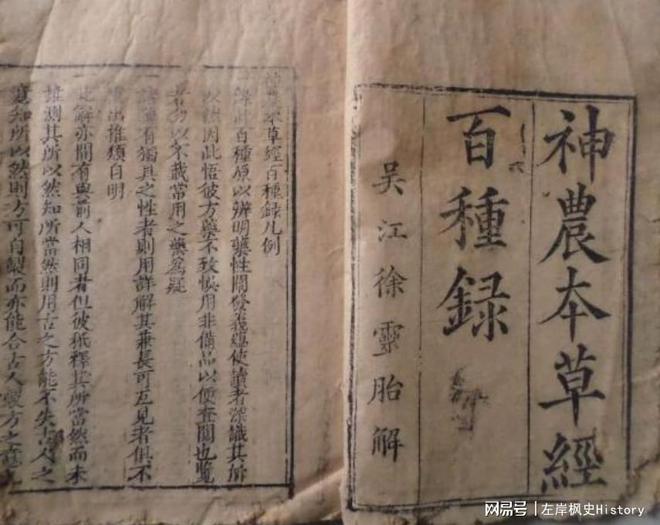 神農本草經
百種録
吴江徐靈胎解
神農本草經百種録凡例
此百種原以辨明藥性闡發義蘊使讀者深識其所
以然因此悟彼方藥不致悞用非備品以便查閲也覽
者勿以不載常用之藥爲疑
諸藥有獨具之性者則用詳解其兼長可互見者俱不
重出推類自明
此解亦間有與前人相同者但彼祇釋其所當然而未
推測其所以然知所當然則用古之方能不失古人之
意知所以然則方可自製而亦能合古人製方之
網易号 | 左岸枫史History